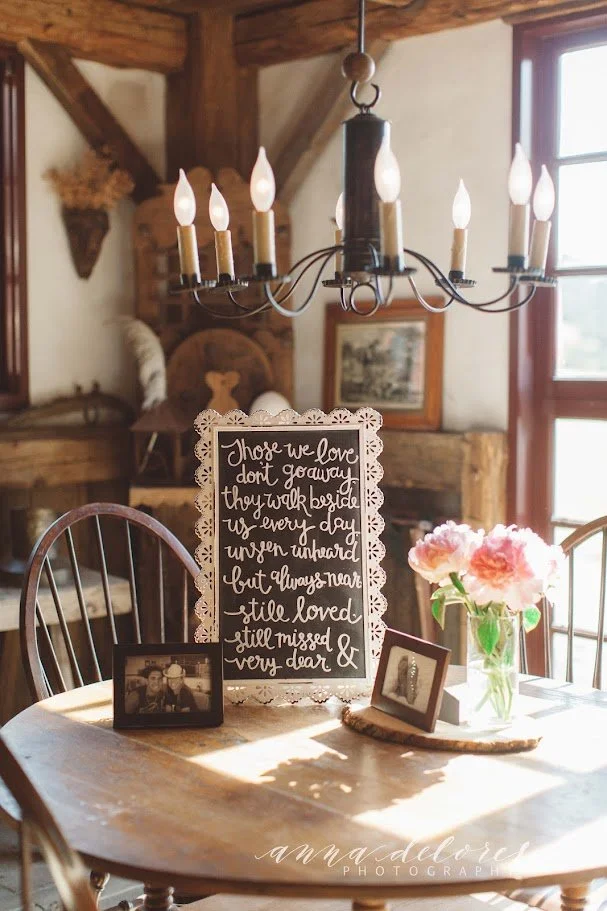 Those we love
don't go away,
they walk beside
us every day,
unseen unheard
but always near
still loved
still missed &
very dear
anna delores
PHOTOGRAPHY